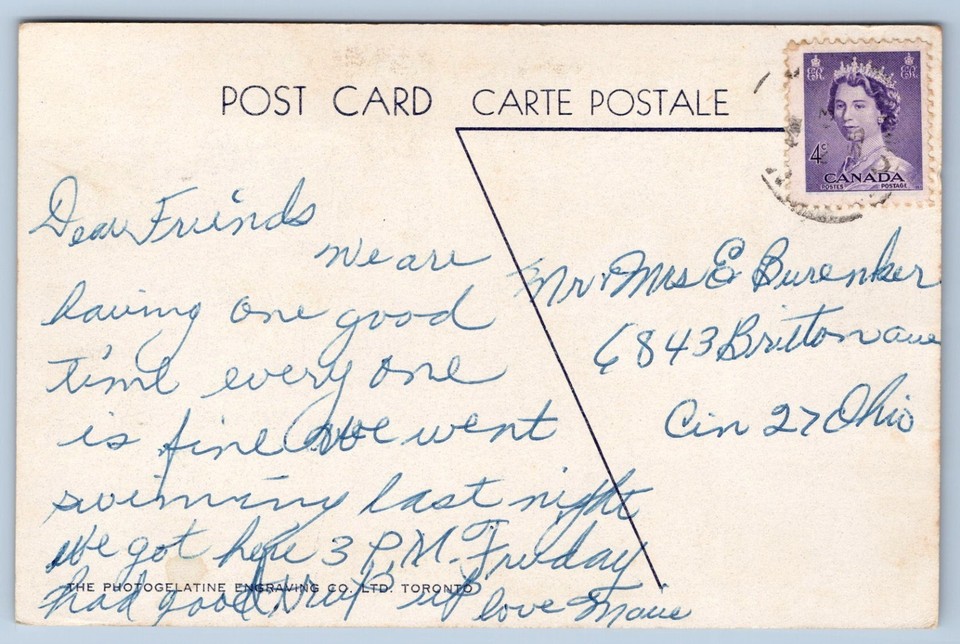 POST CARD CARTE POSTALE
4¢
CANADA
POSTES POSTAGE
Dear Friends
We are
having one good
time every one
is fine we went
swimming last night
We got here 3 P.M. Friday
had good trip up love Marie
THE PHOTOGELATINE ENGRAVING CO. LTD. TORONTO
Mr & Mrs E Burenker
6843 Britton ave
Cin 27 Ohio